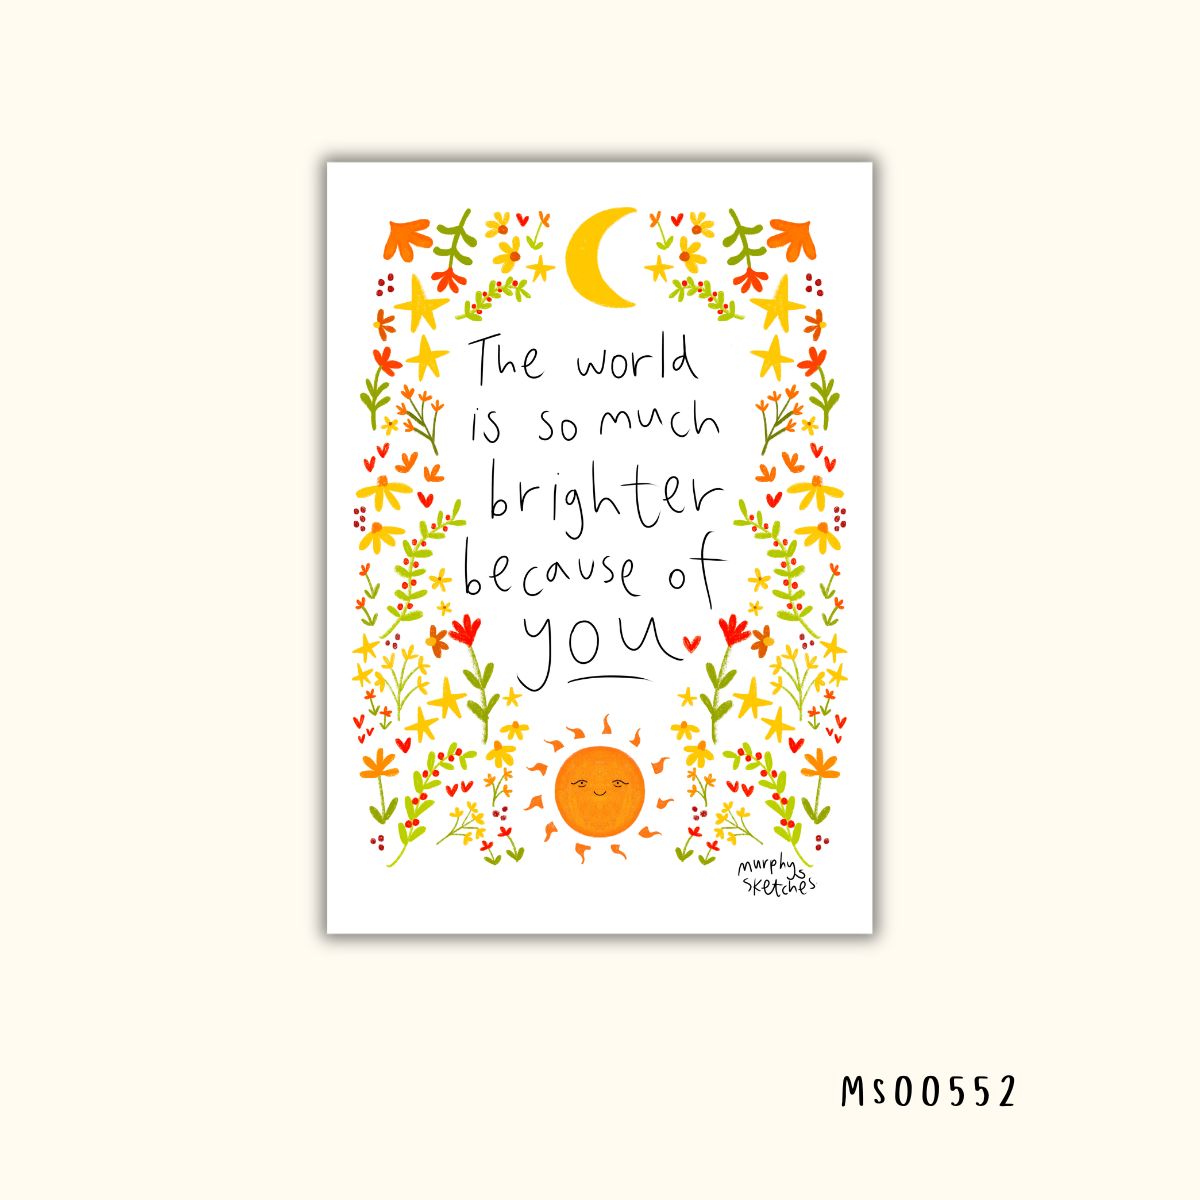 The world
is so much
brighter
because of
you
murphys
sketches
Ms00552